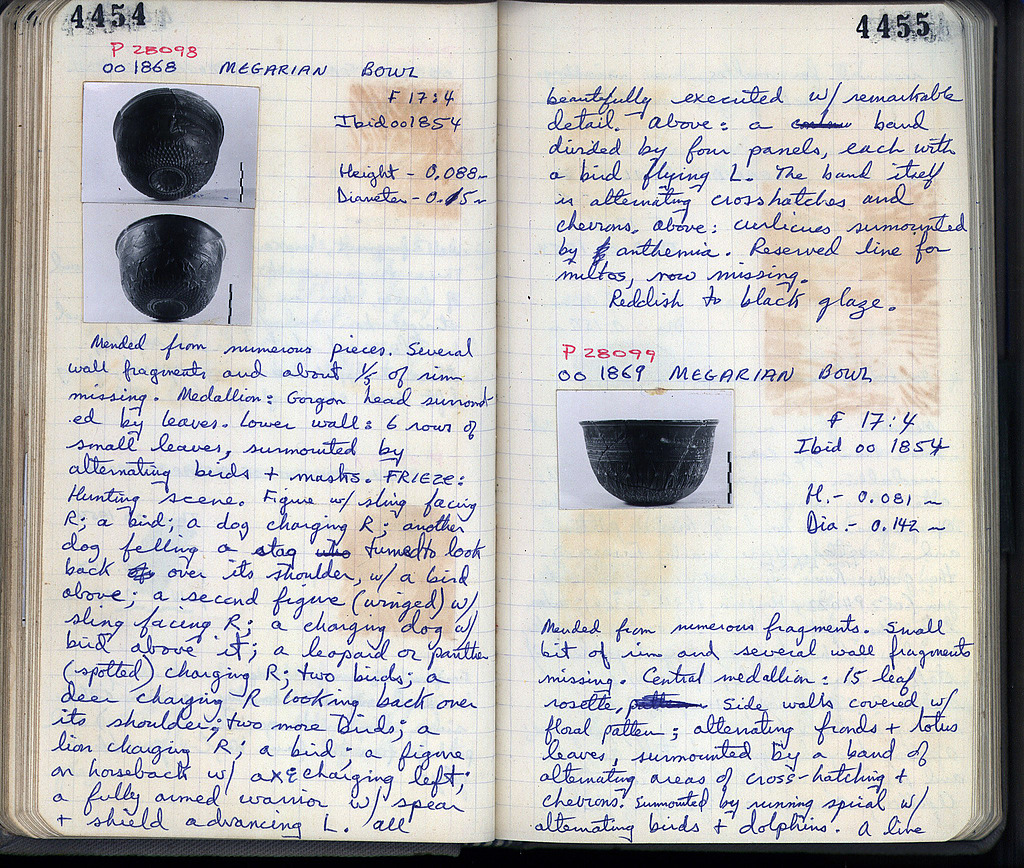 4454
P 28098
OO 1868 MEGARIAN BOWL
F 17:4
Ibid OO 1854
Height - 0.088 m
Diameter - 0.15 m
Mended from numerous pieces. Several
wall fragments and about 1/3 of rim
missing. Medallion: Gorgon head surround-
ed by leaves. Lower wall: 6 rows of
small leaves, surmounted by
alternating birds + masks. FRIEZE:
Hunting scene. Figure w/ sling facing
R; a bird; a dog charging R; another
dog felling a stag who turned to look
back over its shoulder, w/ a bird
above; a second figure (winged) w/
sling facing R; a charging dog w/
bird above it; a leopard or panther
(spotted) charging R; two birds; a
deer charging R looking back over
its shoulder; two more birds; a
lion charging R; a bird; a figure
on horseback w/ axe charging left;
a fully armed warrior w/ spear
+ shield advancing L. All
4455
beautifully executed w/ remarkable
detail. Above: a band
divided by four panels, each with
a bird flying L. The band itself
is alternating crosshatches and
chevrons. Above: curlicues surmounted
by anthemia. Reserved line for
miltos, now missing.
Reddish to black glaze.
P 28099
OO 1869 MEGARIAN BOWL
F 17:4
Ibid OO 1854
H. - 0.081 m
Dia. - 0.142 m
Mended from numerous fragments. Small
bit of rim and several wall fragments
missing. Central medallion: 15 leaf
rosette, side walls covered w/
floral patten; alternating fronds + lotus
leaves, surmounted by a band of
alternating areas of cross-hatching +
chevrons. Surmounted by running spiral w/
alternating birds + dolphins. A line